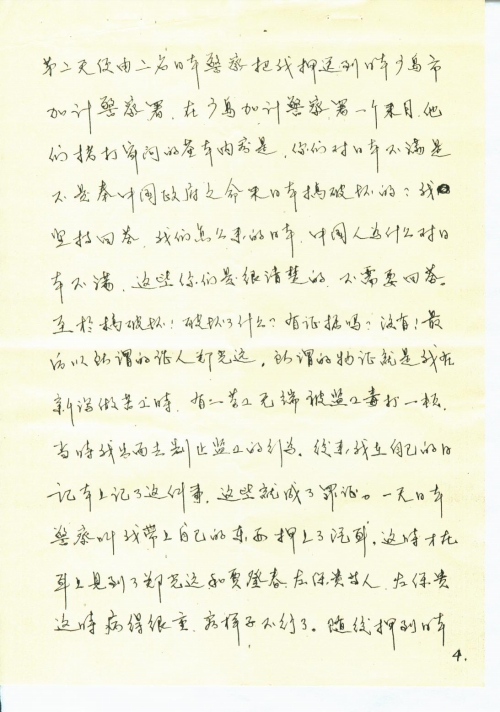 第二天便由二名日本警察把我押送到日本广岛市
加计警察署。在广岛加计警察署一个来月。他
们拷打审问的基本内容是，你们对日本不满是
不是奉中国政府之命来日本搞破坏的？我
坚持回答，我们怎么来的日本，中国人为什么对日
本不满，这些你们是很清楚的，不需要回答。
至於搞破坏！破坏了什么？有证据吗？没有！最
后以所谓的证人郑克远，所谓的物证就是我在
新潟做苦工時，有一苦工无端被监工毒打一顿，
当時我出面去制止监工的行为。後来我在自己的日
记本上记了这件事，这些就成了罪证。一天日本
警察叫我带上自己的东西押上了汽車，这時才在
車上見到了郑克远和贾登春、左保贵等人，左保贵
这時病得很重，看样子不行了。随後押到日本
4.